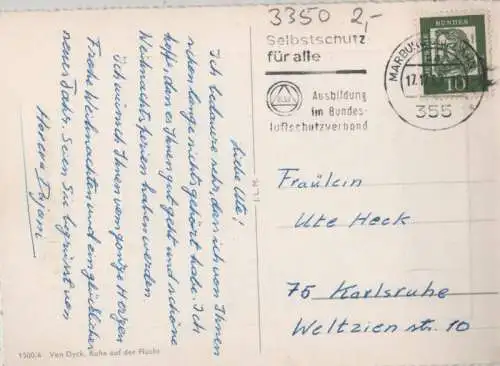 Liebe Ute!
Ich bedaure sehr, dass ich von Ihnen
schon lange nichts gehört habe. Ich
hoffe, dass es Ihnen gut geht und schöne
Weihnachtsferien haben werden.
Ich wünsch Ihnen vom ganze Herzen
Frohe Weihnachten und ein glückliches
neues Jahr. Seien Sie begrüsst von
1500/6 Van Dyck, Ruhe auf der Flucht
3350 2,-
Selbstschutz
für alle
Ausbildung
im Bundes-
luftschutzverband
355
DEUTSCHE
BUNDESPOST
10
Fräulein
Ute Heck
75 Karlsruhe
Weltzien str. 10